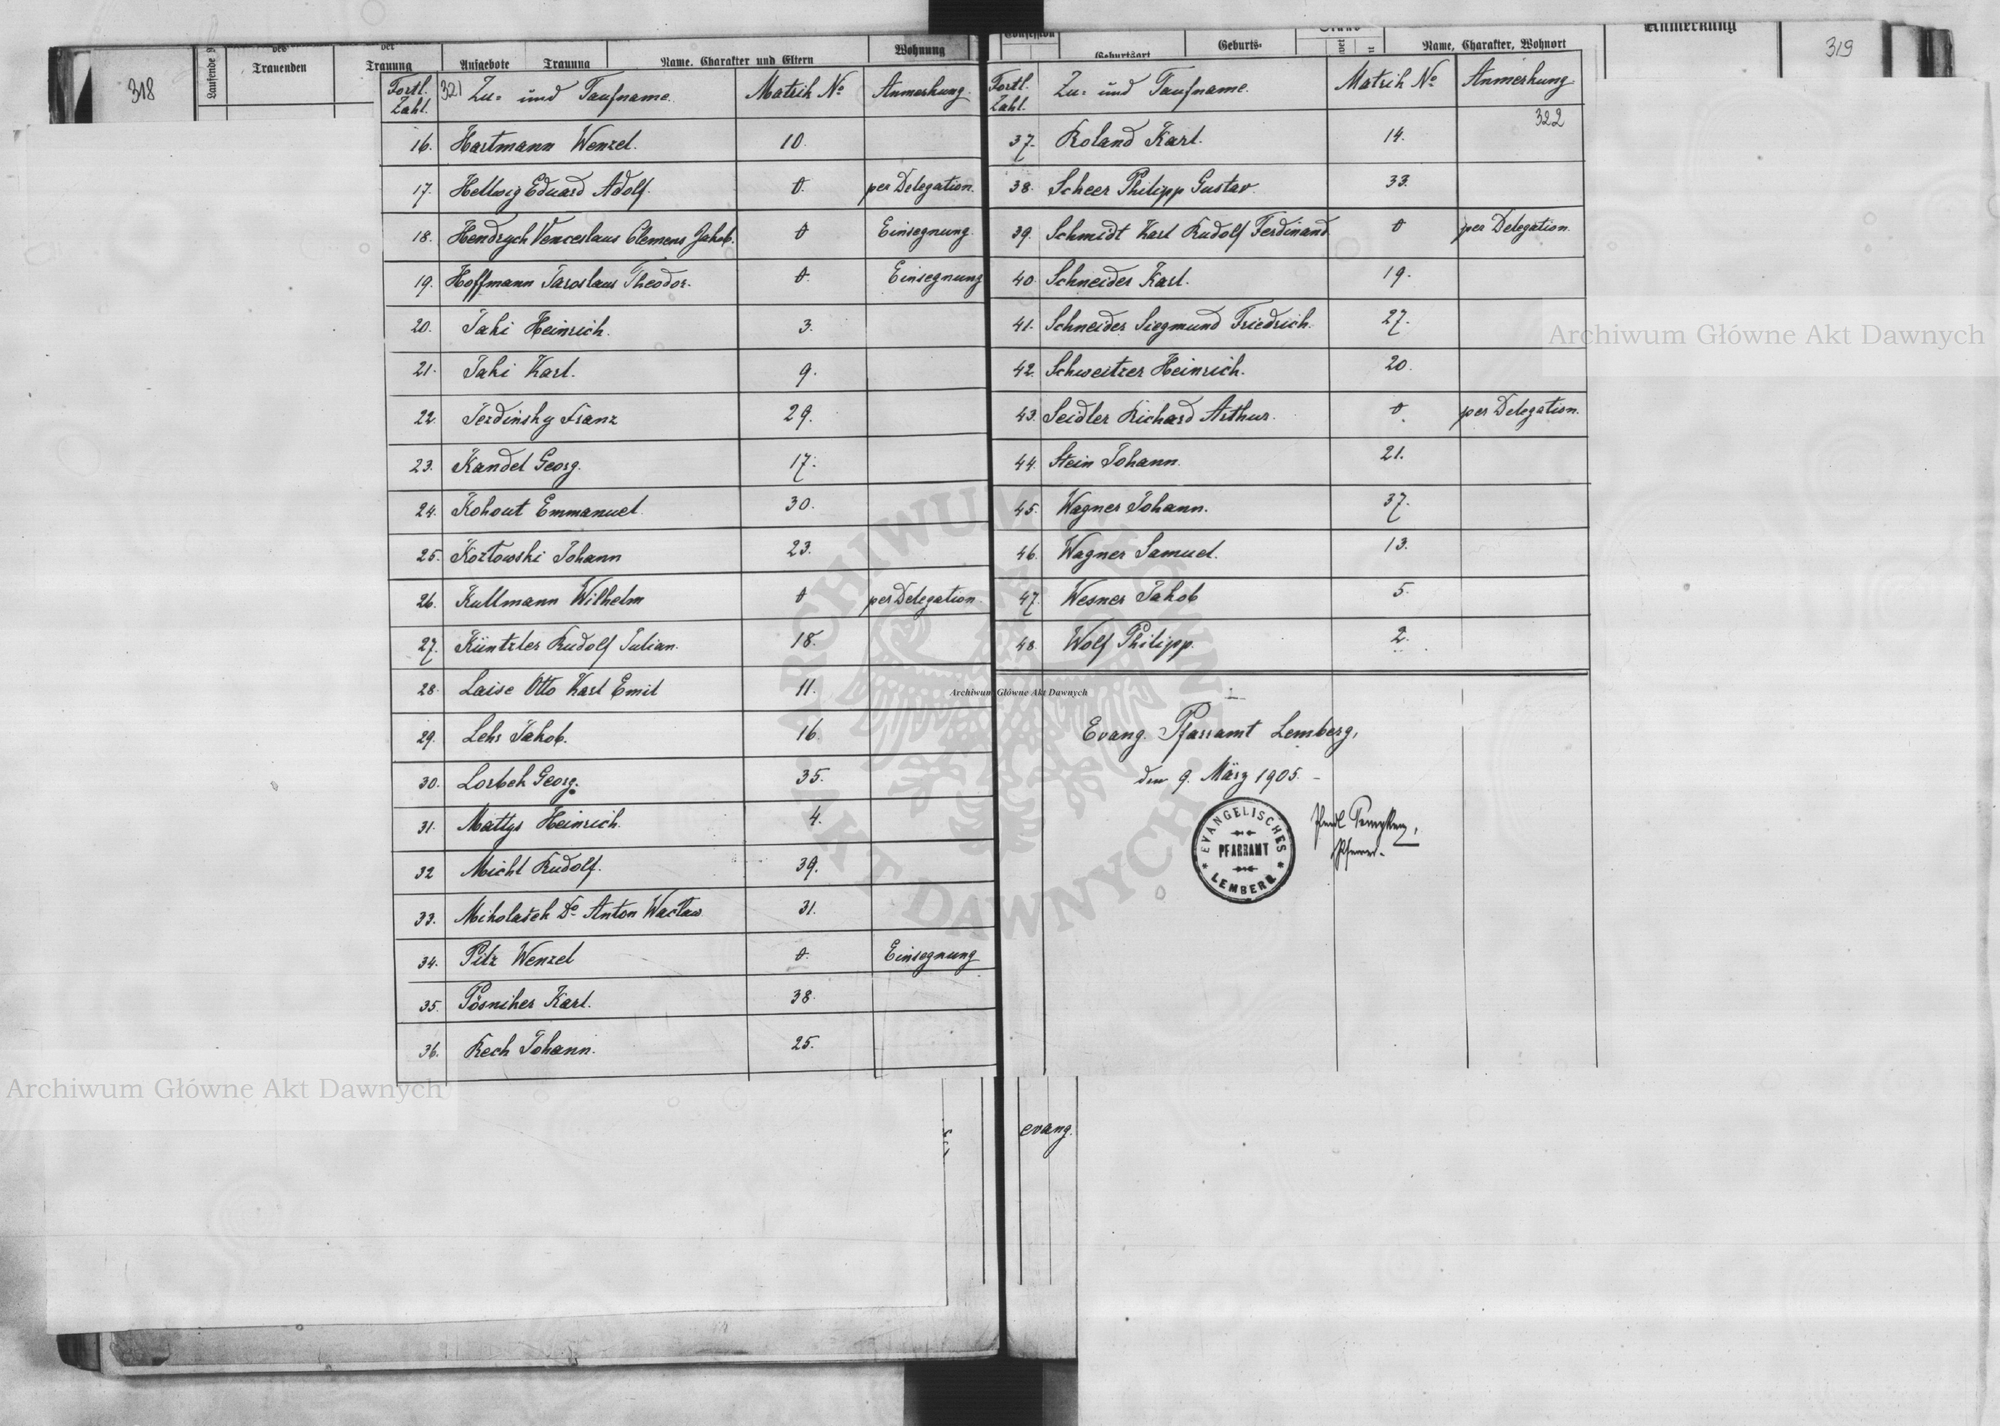 318
Laufende
des
Trauenden
der
Trauung
Aufgebote
Trauung
Name, Charakter und Eltern
Wohnung
Fortl. Zahl. 321 Zu- und Taufname. Matrik No Anmerkung.
16. Hartmann Wenzel. 10.
17. Hellwig Eduard Adolf. 0. per Delegation.
18. Hendrych Venceslaus Clemens Jakob. 0 Einsegnung.
19. Hoffmann Jaroslaus Theodor. 0. Einsegnung
20. Jaki Heinrich. 3.
21. Jaki Karl. 9.
22. Jerdinsky Franz 29.
23. Kandel Georg. 17.
24. Kohout Emmanuel. 30.
25. Kozłowski Johann 23.
26. Kullmann Wilhelm 0 per Delegation.
27. Küntzler Rudolf Julian. 18.
28. Laise Otto Karl Emil 11.
29. Lehr Jakob. 16.
30. Lorbek Georg. 35.
31. Mattys Heinrich. 4.
32 Michl Rudolf. 39.
33. Mikolašek Dr Anton Wacław 31.
34. Pilz Wenzel 0. Einsegnung
35. Pösniker Karl. 38.
36. Rech Johann. 25.
Confession
Geburtsort
Geburts-
Stand
Name, Charakter, Wohnort
Anmerkung
319
Fortl. Zahl. Zu- und Taufname. Matrik No Anmerkung
322
37. Roland Karl. 14.
38. Scheer Philipp Gustav. 33.
39. Schmidt Karl Rudolf Ferdinand 0 per Delegation.
40. Schneider Karl. 19.
41. Schneider Siegmund Friedrich. 27.
42. Schweitzer Heinrich. 20.
43. Seidler Richard Arthur. 0. per Delegation.
44. Stein Johann. 21.
45. Wagner Johann. 37.
46. Wagner Samuel. 13.
47. Wesner Jakob 5.
48. Wolf Philipp. 2.
Evang. Pfarramt Lemberg,
den 9. März 1905.
EVANGELISCHES
PFARRAMT
LEMBERG
Pfarrer.
evang.
Archiwum Główne Akt Dawnych
Archiwum Główne Akt Dawnych
Archiwum Główne Akt Dawnych
ARCHIWUM GŁÓWNE AKT DAWNYCH